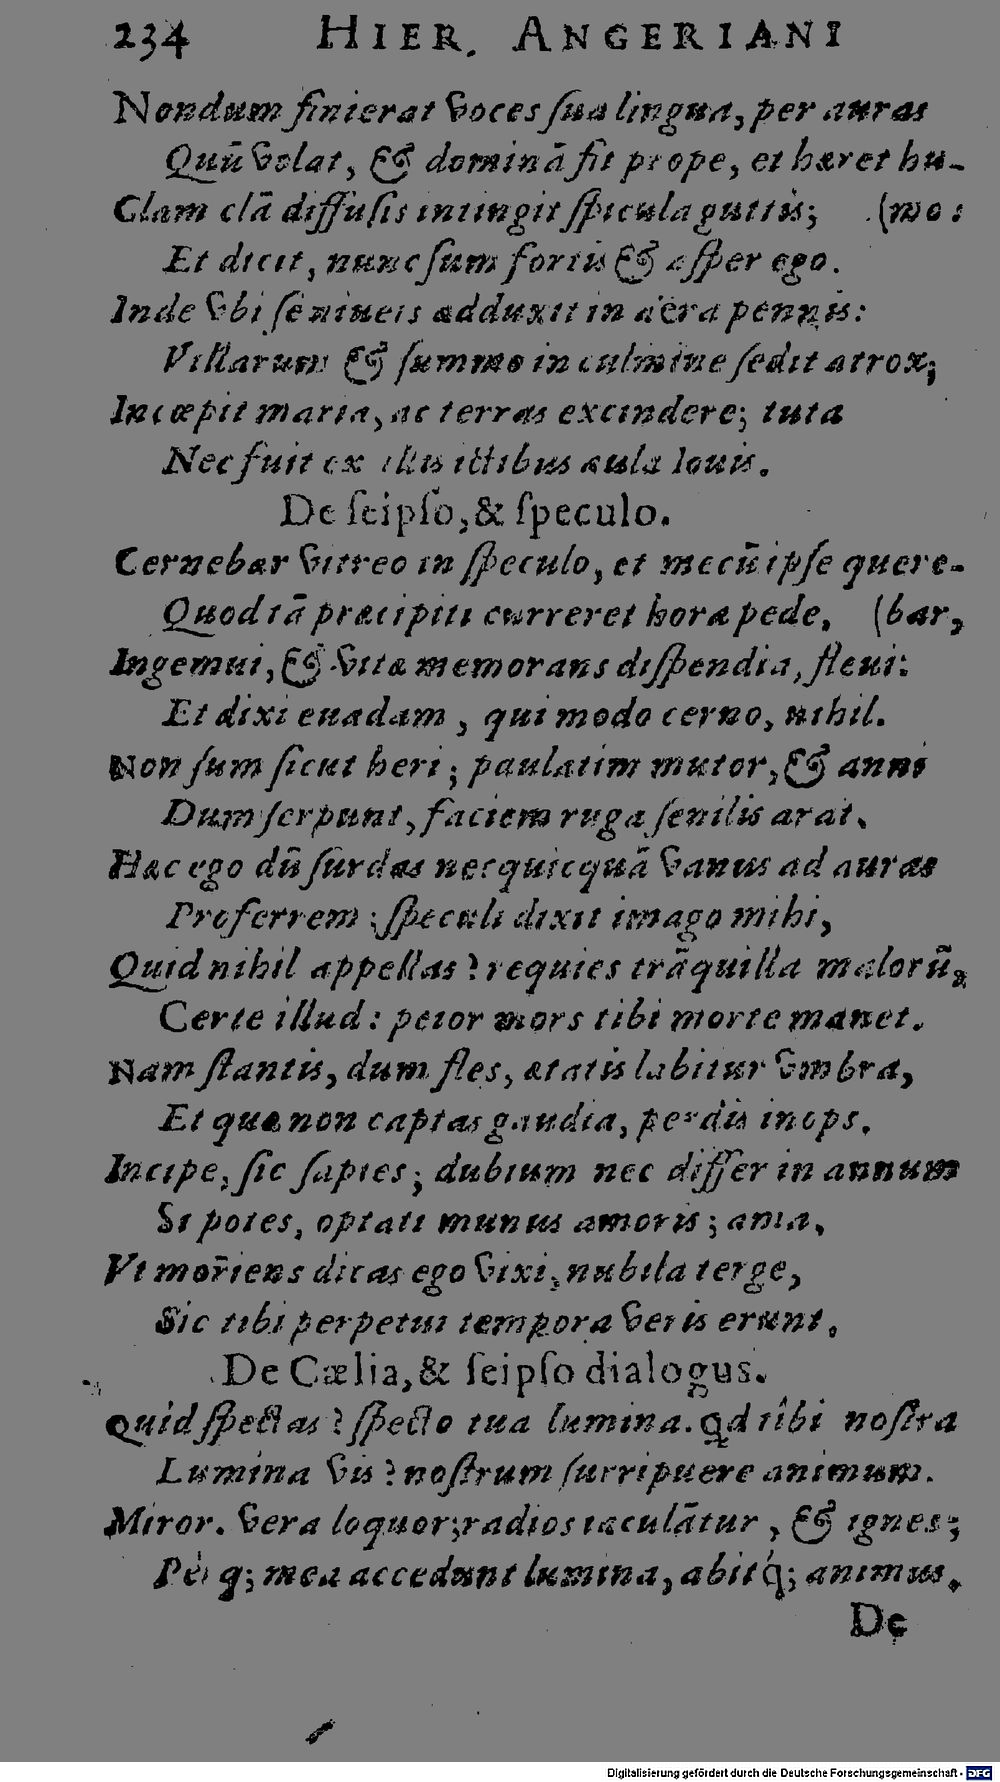 234 HIER. ANGERIANI
Nondum finierat voces sua lingua, per auras
Quũ volat, & dominã fit prope, et hæret hu-
Clam clã diffusis intingit spicula guttis; (mo:
Et dicit, nunc sum fortis & asper ego.
Inde vbi se niueis adduxit in aëra pennis:
Villarum & summo in culmine sedit atrox;
Incœpit maria, ac terras excindere; tuta
Nec fuit ex illis ictibus aula Iouis.
De seipso, & speculo.
Cernebar vitreo in speculo, et mecũ ipse quere-
Quod tã præcipiti curreret hora pede, (bar,
Ingemui, & vitæ memorans dispendia, fleui:
Et dixi euadam, qui modo cerno, nihil.
Non sum sicut heri; paulatim mutor, & anni
Dum serpunt, faciem ruga senilis arat.
Hæc ego dũ surdas necquicquã vanus ad auras
Proferrem; speculi dixit imago mihi,
Quid nihil appellas? requies trãquilla malorũ,
Certe illud: peior mors tibi morte manet.
Nam stantis, dum fles, ætatis labitur vmbra,
Et quæ non captas gaudia, perdis inops.
Incipe, sic sapies; dubium nec differ in annum
Si potes, optati munus amoris; ama,
Vt moriens dicas ego vixi, nubila terge,
Sic tibi perpetui tempora veris erunt.
De Cælia, & seipso dialogus.
Quid spectas? specto tua lumina. Qd tibi nostra
Lumina vis? nostrum surripuere animum.
Miror. vera loquor; radios iaculãtur, & ignes;
Per q; mea accedunt lumina, abit q; animus.
De
Digitalisierung gefördert durch die Deutsche Forschungsgemeinschaft - DFG